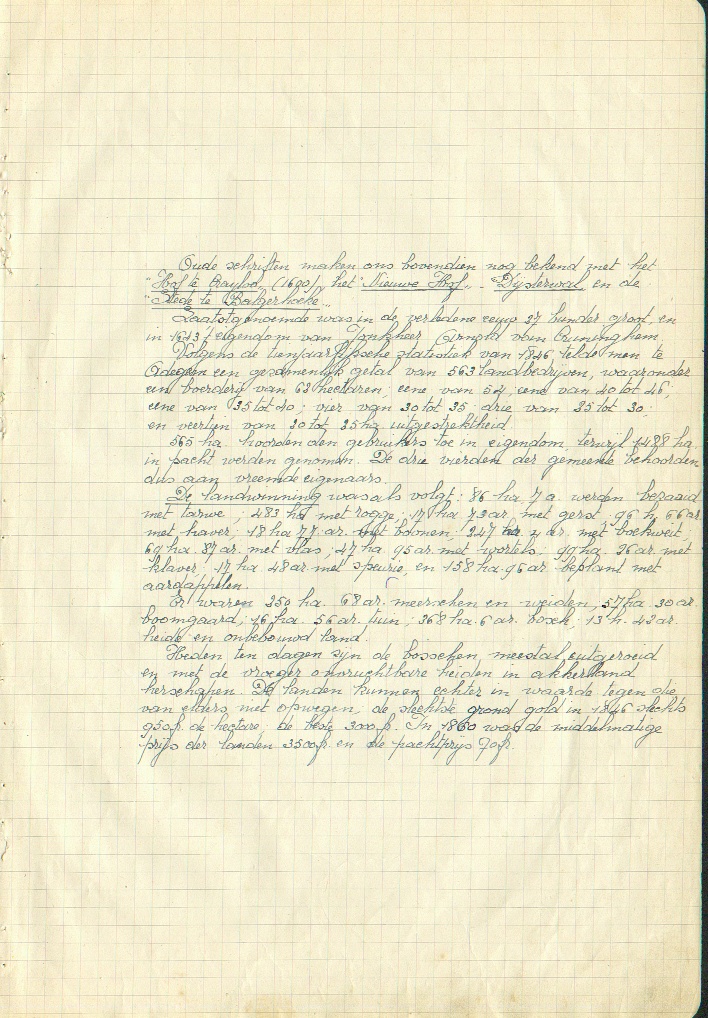 Oude schriften maken ons bovendien nog bekend met het
"Hof te Crayloo, (1690), het "Nieuwe Hof„ - "Dijsterwal, en de
"Stede te Balgerhoeke„.
Laatstgenoemde was in de verledene eeuw 27 bunder groot, en
in 1643 eigendom van Jonkheer Arnold van Cruninghem.
Volgens de tienjaarlijksche statistiek van 1846, telde men te
Adegem een gezamenlijk getal van 563 landbedrijven, waaronder
een boerderij van 63 hectaren; eene van 54; eene van 40 tot 45;
eene van 35 tot 40; vier van 30 tot 35; drie van 25 tot 30;
en veertien van 20 tot 25 ha uitgestrektheid.
565 ha. hoorden den gebruikers toe in eigendom, terwijl 1488 ha.
in pacht werden genomen. De drie vierden der gemeente behoorden
dus aan vreemde eigenaars.
De landwinning was als volgt: 86 ha, 7 a. werden bezaaid
met tarwe; 483 ha met rogge; 17 ha 73 ar, met gerst, 96 h, 66 ar
met haver; 18 ha 77 ar. met boonen; 247 ha 4 ar. met boekweit;
69 ha. 87 ar. met vlas; 47 ha. 95 ar. met wortels; 99 ha. 26 ar. met
klaver; 17 ha. 48 ar. met speurie, en 158 ha. 96 ar. beplant met
aardappelen.
Er waren 250 ha. 68 ar. meerschen en weiden, 57 ha. 30 ar.
boomgaard; 16 ha. 56 ar. tuin; 368 ha. 6 ar. bosch; 13 h. 42 ar.
heide en onbebouwd land.
Heden ten dagen zijn de bosschen, meestal, uitgeroeid
en met de vroeger onvruchtbare heiden in akkerland
herschapen. De landen kunnen echter in waarde tegen die
van elders niet opwegen; de slechtste grond gold in 1846 slechts
950 fr. de hectare, de beste 3000 fr. In 1860 was de middelmatige
prijs der landen 3500 fr. en de pachtprijs 70 fr.